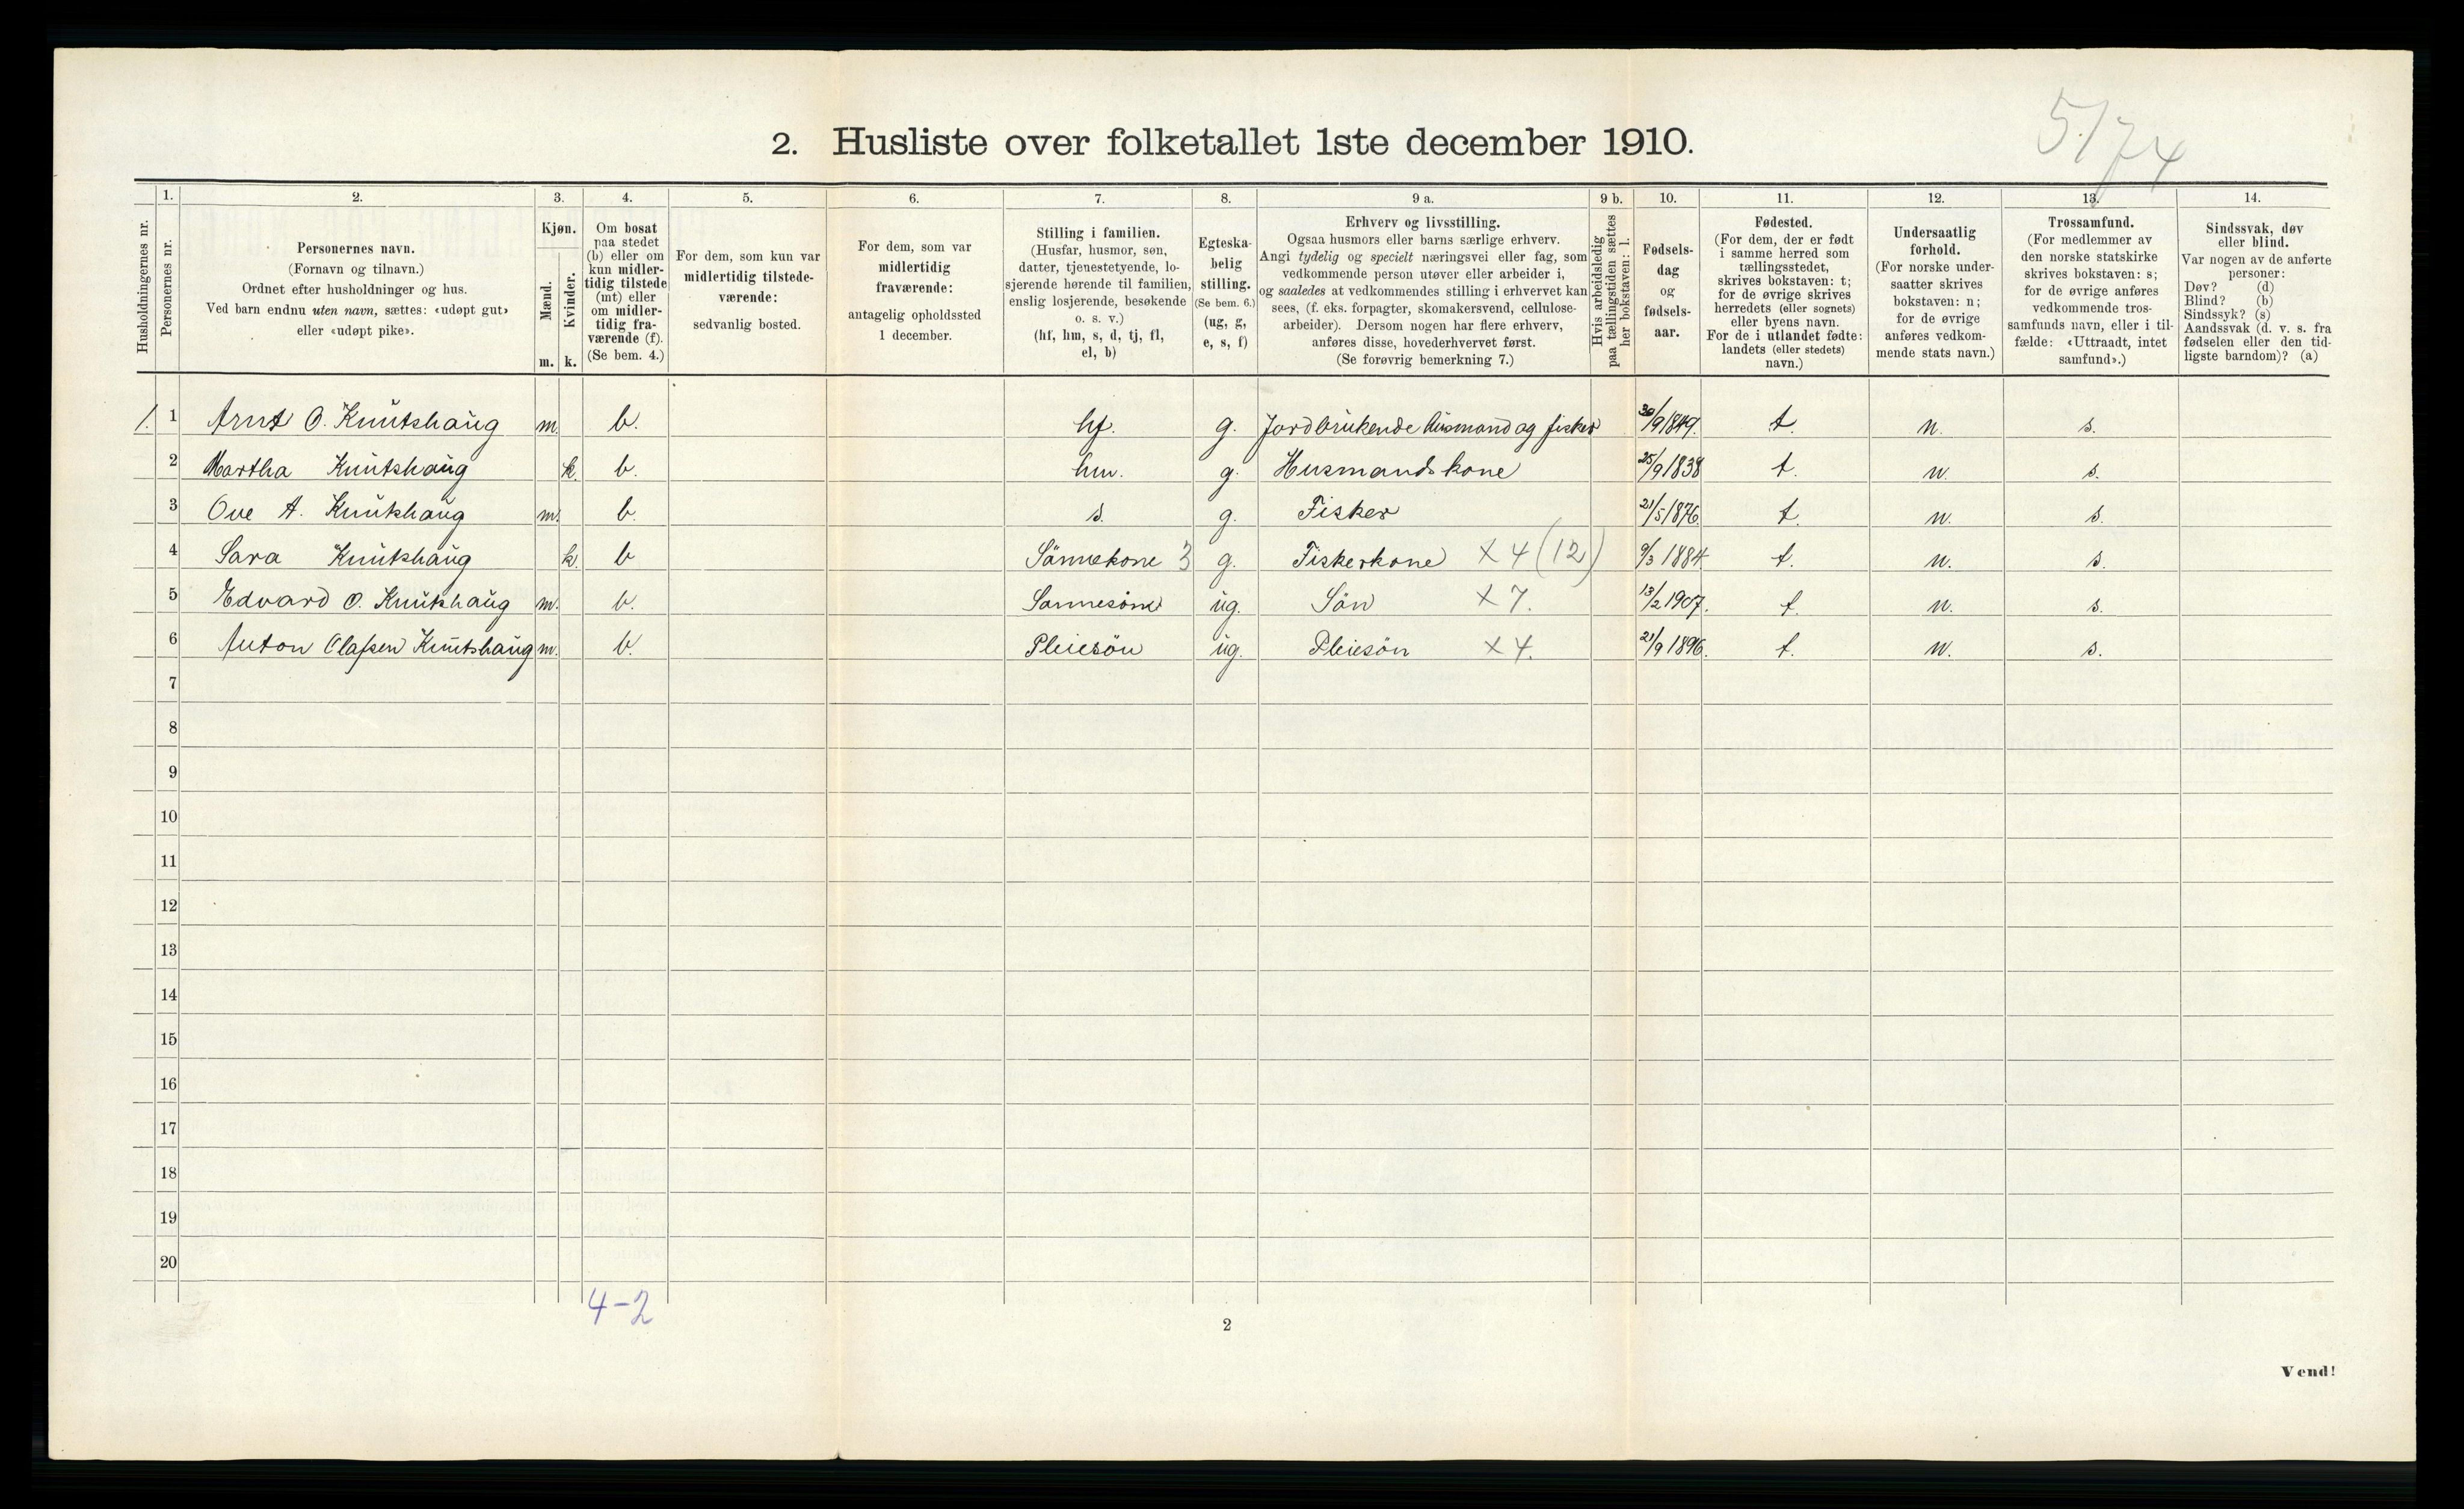 5/74
2. Husliste over folketallet 1ste december 1910.
1. 2. 3. 4. 5. 6. 7. 8. 9 a. 9 b. 10. 11. 12. 13. 14.
Husholdningernes nr.
Personernes nr.
Personernes navn.
(Fornavn og tilnavn.)
Ordnet efter husholdninger og hus.
Ved barn endnu uten navn, sættes: «udøpt gut»
eller «udøpt pike».
Kjøn.
Mænd.
Kvinder.
m. k.
Om bosat
paa stedet
(b) eller om
kun midler-
tidig tilstede
(mt) eller
om midler-
tidig fra-
værende (f).
(Se bem. 4.)
For dem, som kun var
midlertidig tilstede-
værende:
sedvanlig bosted.
For dem, som var
midlertidig
fraværende:
antagelig opholdssted
1 december.
Stilling i familien.
(Husfar, husmor, søn,
datter, tjenestetyende, lo-
sjerende hørende til familien,
enslig losjerende, besøkende
o. s. v.)
(hf, hm, s, d, tj, fl,
el, b)
Egteska-
belig
stilling.
(Se bem. 6.)
(ug, g,
e, s, f)
Erhverv og livsstilling.
Ogsaa husmors eller barns særlige erhverv.
Angi tydelig og specielt næringsvei eller fag, som
vedkommende person utøver eller arbeider i,
og saaledes at vedkommendes stilling i erhvervet kan
sees, (f. eks. forpagter, skomakersvend, cellulose-
arbeider). Dersom nogen har flere erhverv,
anføres disse, hovederhvervet først.
(Se forøvrig bemerkning 7.)
Hvis arbeidsledig
paa tællingstiden sættes
her bokstaven: l.
Fødsels-
dag
og
fødsels-
aar.
Fødested.
(For dem, der er født
i samme herred som
tællingsstedet,
skrives bokstaven: t;
for de øvrige skrives
herredets (eller sognets)
eller byens navn.
For de i utlandet fødte:
landets (eller stedets)
navn.)
Undersaatlig
forhold.
(For norske under-
saatter skrives
bokstaven: n;
for de øvrige
anføres vedkom-
mende stats navn.)
Trossamfund.
(For medlemmer av
den norske statskirke
skrives bokstaven: s;
for de øvrige anføres
vedkommende tros-
samfunds navn, eller i til-
fælde: «Uttraadt, intet
samfund».)
Sindssvak, døv
eller blind.
Var nogen av de anførte
personer:
Døv? (d)
Blind? (b)
Sindssyk? (s)
Aandssvak (d. v. s. fra
fødselen eller den tid-
ligste barndom)? (a)
1. 1 Arnt O. Knutshaug m. b. hf. g. Jordbrukende husmand og fisker 30/9 1849. t. n. s.
2 Martha Knutshaug k. b. hm. g. Husmandskone 25/9 1838 t. n. s.
3 Ove A. Knutshaug m. b. s. g. Fisker 21/5 1876 t. n. s.
4 Sara Knutshaug k. b Sønnekone 3 g. Fiskerkone x 4 (12) 9/3 1884 t. n. s.
5 Edvard O. Knutshaug m. b. Sønnesøn ug. Søn x 7. 13/2 1907. t. n. s.
6 Anton Olafsen Knutshaug m. b. Pleiesøn ug. Pleiesøn x 4. 21/9 1896. t. n. s.
7
8
9
10
11
12
13
14
15
16
17
18
19
20
4-2
2
Vend!